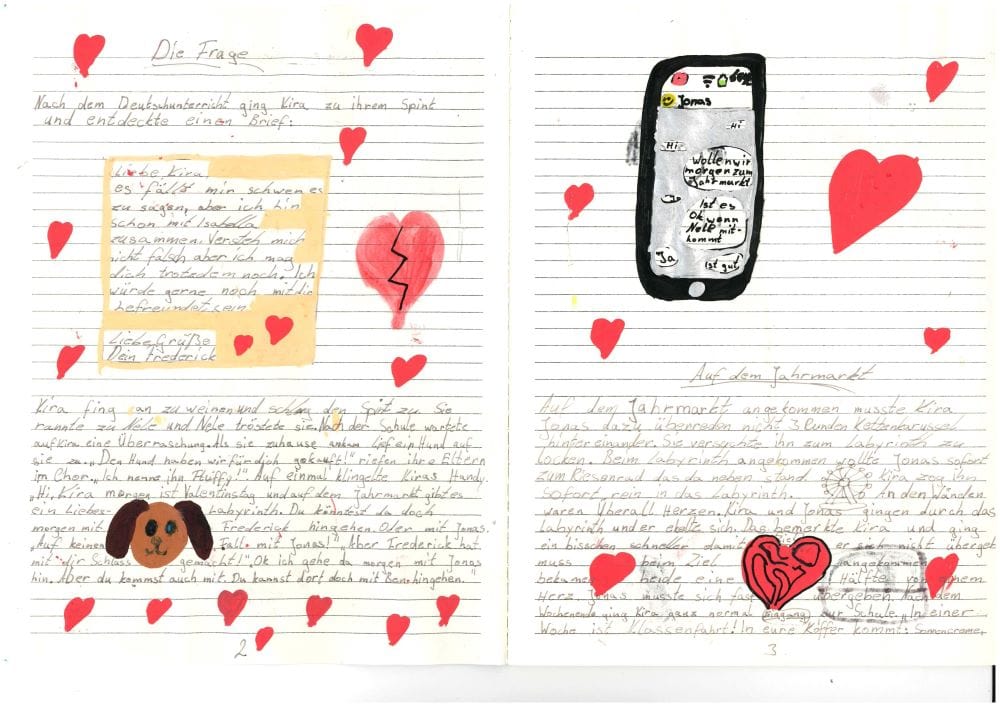 Die Frage
Nach dem Deutschunterricht ging Kira zu ihrem Spint
und entdeckte einen Brief:
Liebe Kira
es fällt mir schwer es
zu sagen, aber ich bin
schon mit Isabella
zusammen. Versteh mich
nicht falsch aber ich mag
dich trotzdem noch. Ich
würde gerne noch mit dir
befreundet sein
Liebe Grüße
Dein Frederick
Kira fing an zu weinen und schlug den Spint zu. Sie
rannte zu Nele und Nele tröstete sie. Nach der Schule wartete
auf Kira eine Überraschung. Als sie zuhause ankam lief ein Hund auf
sie zu. „Den Hund haben wir für dich gekauft!" riefen ihre Eltern
im Chor. „Ich nenne ihn Fluffy!". Auf einmal klingelte Kiras Handy.
„Hi, Kira morgen ist Valentinstag und auf dem Jahrmarkt gibt es
ein Liebes- Labyrinth. Du könntest da doch
morgen mit Frederick hingehen. Oder mit Jonas."
„Auf keinen Fall mit Jonas!" „Aber Frederick hat
mit dir Schluss gemacht!" Ok Ich gehe da morgen mit Jonas
hin. Aber du kommst auch mit. Du kannst dort doch mit Ben hingehen."
2
Jonas
Hi
Hi
Wollen wir
morgen zum
Jahrmarkt
Ja
Ist es
Ok wenn
Nele mit-
kommt
Ja
Ist gut
Auf dem Jahrmarkt
Auf dem Jahrmarkt angekommen musste Kira
Jonas dazu überreden nicht 3 Runden Kettenkarussel
hintereinander. Sie versuchte ihn zum Labyrinth zu
locken. Beim Labyrinth angekommen wollte Jonas sofort
zum Riesenrad das da neben stand. Kira zog ihn
sofort rein in das Labyrinth. An den Wänden
waren Überall Herzen. Kira und Jonas gingen durch das
Labyrinth und er ekelte sich. Das bemerkte Kira und ging
ein bisschen schneller damit er sich nicht übergeben
muss beim Ziel angekommen
bekamen beide eine Hälfte von einem
Herz. Jonas musste sich fast übergeben. Nach dem
Wochenende ging Kira ganz normal zur Schule. „In einer
Woche ist Klassenfahrt! In eure Koffer kommt: Sonnencreme,
Eingang
3